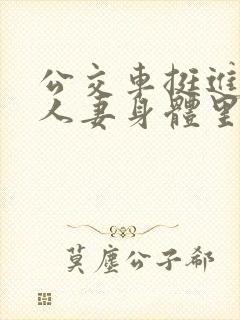 公交車挺進
人妻身體里
莫塵公子郗